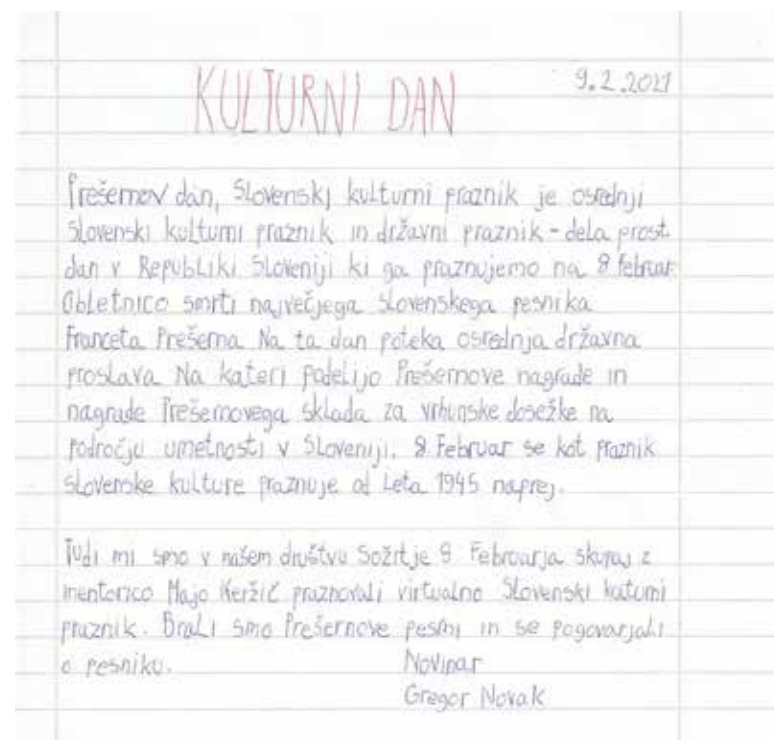 KULTURNI DAN
9.2.2021
Prešernov dan, Slovenski kulturni praznik je osrednji
Slovenski kulturni praznik in državni praznik - dela prost
dan v Republiki Sloveniji ki ga praznujemo na 8 februar.
Obletnico smrti največjega slovenskega pesnika
Franceta Prešerna Na ta dan poteka osrednja državna
proslava Na kateri podelijo Prešernove nagrade in
nagrade Prešernovega sklada za vrhunske dosežke na
področju umetnosti v Sloveniji. 8 Februar se kot praznik
slovenske kulture praznuje od Leta 1945 naprej.
Tudi mi smo v našem društvu Sožitje 8 Februarja skupaj z
mentorico Majo Keržič praznovali virtualno Slovenski katurni
praznik. Brali smo Prešernove pesmi in se pogovarjali
o pesniku.
Novinar
Gregor Novak